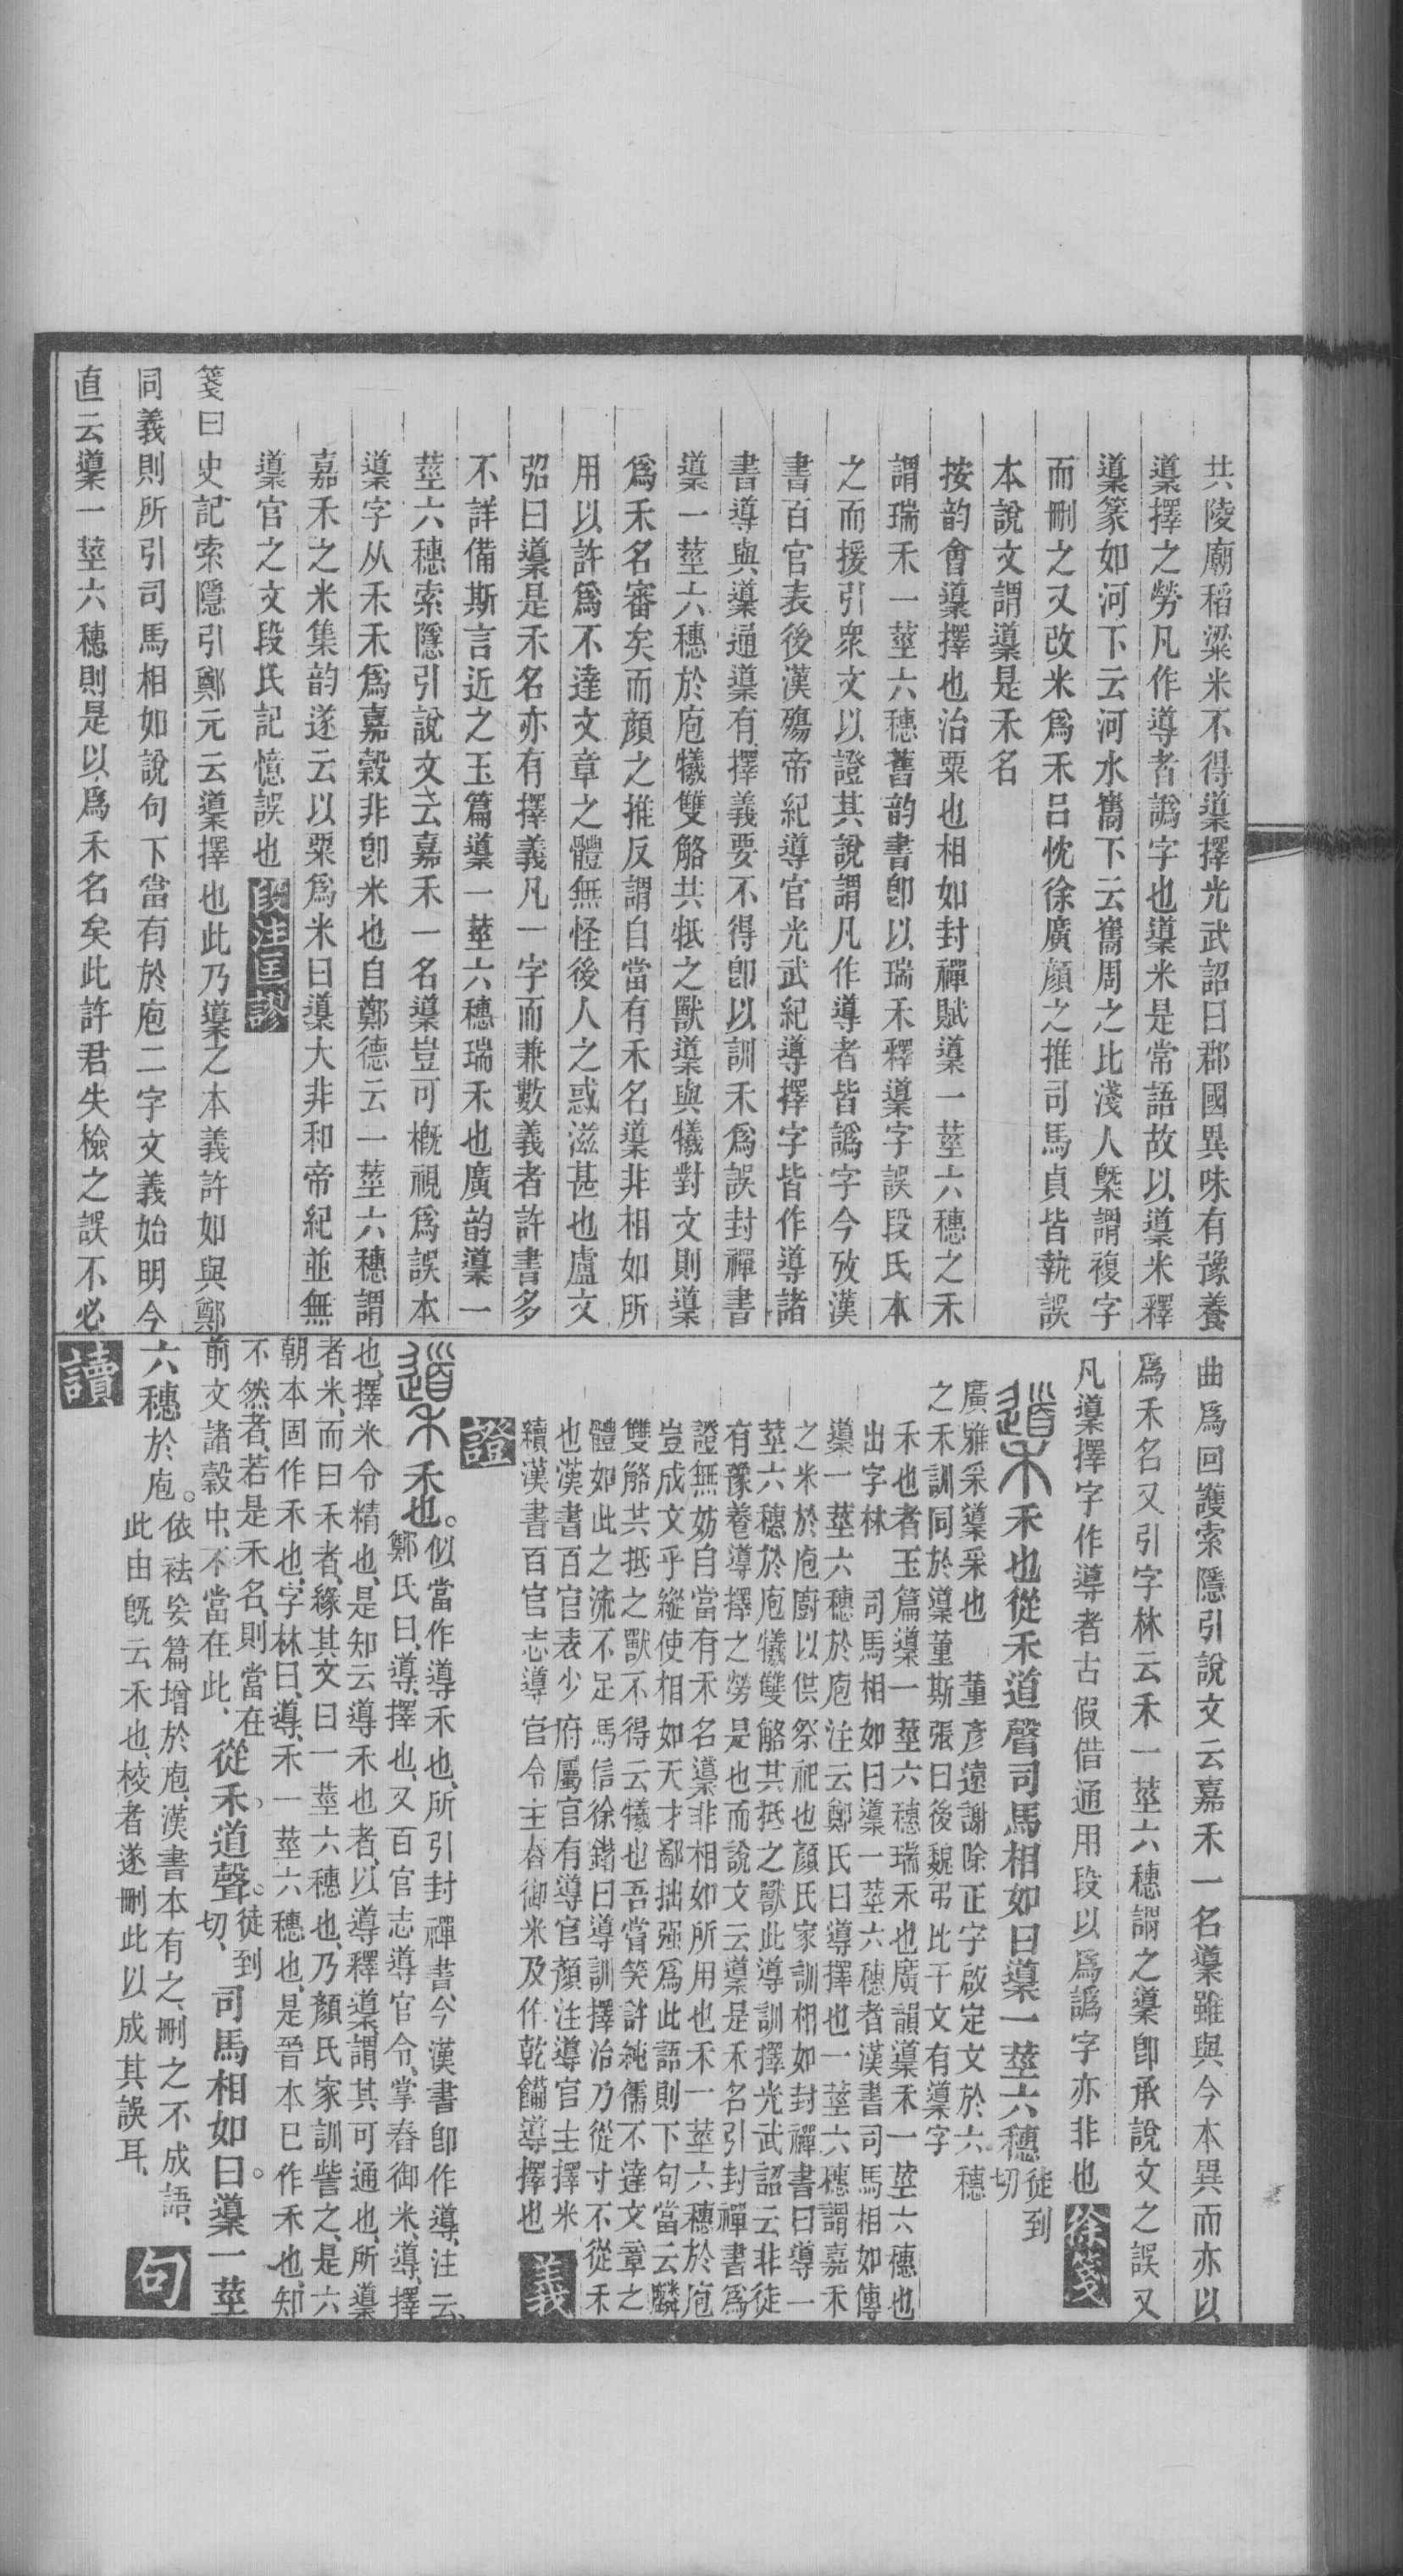 共陵廟稻粱米不得䆃擇光武詔曰郡國異味有豫養
䆃擇之勞凡作導者譌字也䆃米是常語故以䆃米釋
䆃篆如河下云河水巂下云巂周之比淺人槩謂複字
而刪之又改米爲禾呂忱徐廣顏之推司馬貞皆執誤
本說文謂䆃是禾名
按韵會䆃擇也治粟也相如封禪賦䆃一莖六穗之禾
謂瑞禾一莖六穗舊韵書卽以瑞禾釋䆃字誤段氏本
之而援引衆文以證其說謂凡作導者皆譌字今攷漢
書百官表後漢殤帝紀導官光武紀導擇字皆作導諸
書導與䆃通䆃有擇義要不得卽以訓禾爲誤封禪書
䆃一莖六穗於庖犧雙觡共牴之獸䆃與犧對文則䆃
爲禾名審矣而顏之推反謂自當有禾名䆃非相如所
用以許爲不達文章之體無怪後人之惑滋甚也盧文
弨曰䆃是禾名亦有擇義凡一字而兼數義者許書多
不詳備斯言近之玉篇䆃一莖六穗瑞禾也廣韵䆃一
莖六穗索隱引說文云嘉禾一名䆃豈可槪視爲誤本
䆃字从禾禾爲嘉穀非卽米也自鄭德云一莖六穗謂
嘉禾之米集韵遂云以粟爲米曰䆃大非和帝紀並無
䆃官之文段氏記憶誤也 段注匡謬
箋曰史記索隱引鄭元云䆃擇也此乃䆃之本義許如與鄭
同義則所引司馬相如說句下當有於庖二字文義始明今
直云䆃一莖六穗則是以爲禾名矣此許君失檢之誤不必
曲爲回護索隱引說文云嘉禾一名䆃雖與今本異而亦以
爲禾名又引字林云禾一莖六穗謂之䆃卽承說文之誤又
凡䆃擇字作導者古假借通用段以爲譌字亦非也 徐箋
䆃 禾也從禾道聲司馬相如曰䆃一莖六穗 徒到切
廣雅采䆃采也 董彥遠謝除正字啟定文於六穗
之禾訓同於䆃董斯張曰後魏弔比干文有䆃字
禾也者玉篇䆃一莖六穗瑞禾也廣韻䆃禾一莖六穗也
出字林 司馬相如曰䆃一莖六穗者漢書司馬相如傳
䆃一莖六穗於庖注云鄭氏曰導擇也一莖六穗謂嘉禾
之米於庖廚以供祭祀也顏氏家訓相如封禪書曰導一
莖六穗於庖犧雙觡共抵之獸此導訓擇光武詔云非徒
有豫養導擇之勞是也而說文云䆃是禾名引封禪書爲
證無妨自當有禾名䆃非相如所用也禾一莖六穗於庖
豈成文乎縱使相如天才鄙拙强爲此語則下句當云麟
雙觡共抵之獸不得云犧也吾嘗笑許純儒不達文章之
體如此之流不足馮信徐鍇曰導訓擇治乃從寸不從禾
也漢書百官表少府屬官有導官顏注導官主擇米
續漢書百官志導官令主舂御米及作乾糒導擇也 義
證
䆃 禾也。似當作導禾也、所引封禪書、今漢書卽作導、注云、
鄭氏曰、導、擇也、又百官志導官令、掌舂御米、導、擇
也、擇米令精也、是知云導禾也者、以導釋䆃、謂其可通也、所䆃
者米、而曰禾者、緣其文曰一莖六穗也、乃顏氏家訓訾之、是六
朝本固作禾也、字林曰、導、禾一莖六穗也、是晉本已作禾也、知
不然者、若是禾名、則當在
前文諸穀中、不當在此、從禾、道聲。徒到切、司馬相如曰。䆃一莖
六穗於庖。依袪妄篇增於庖、漢書本有之、刪之不成語、
此由旣云禾也、校者遂刪此以成其誤耳、 句
讀